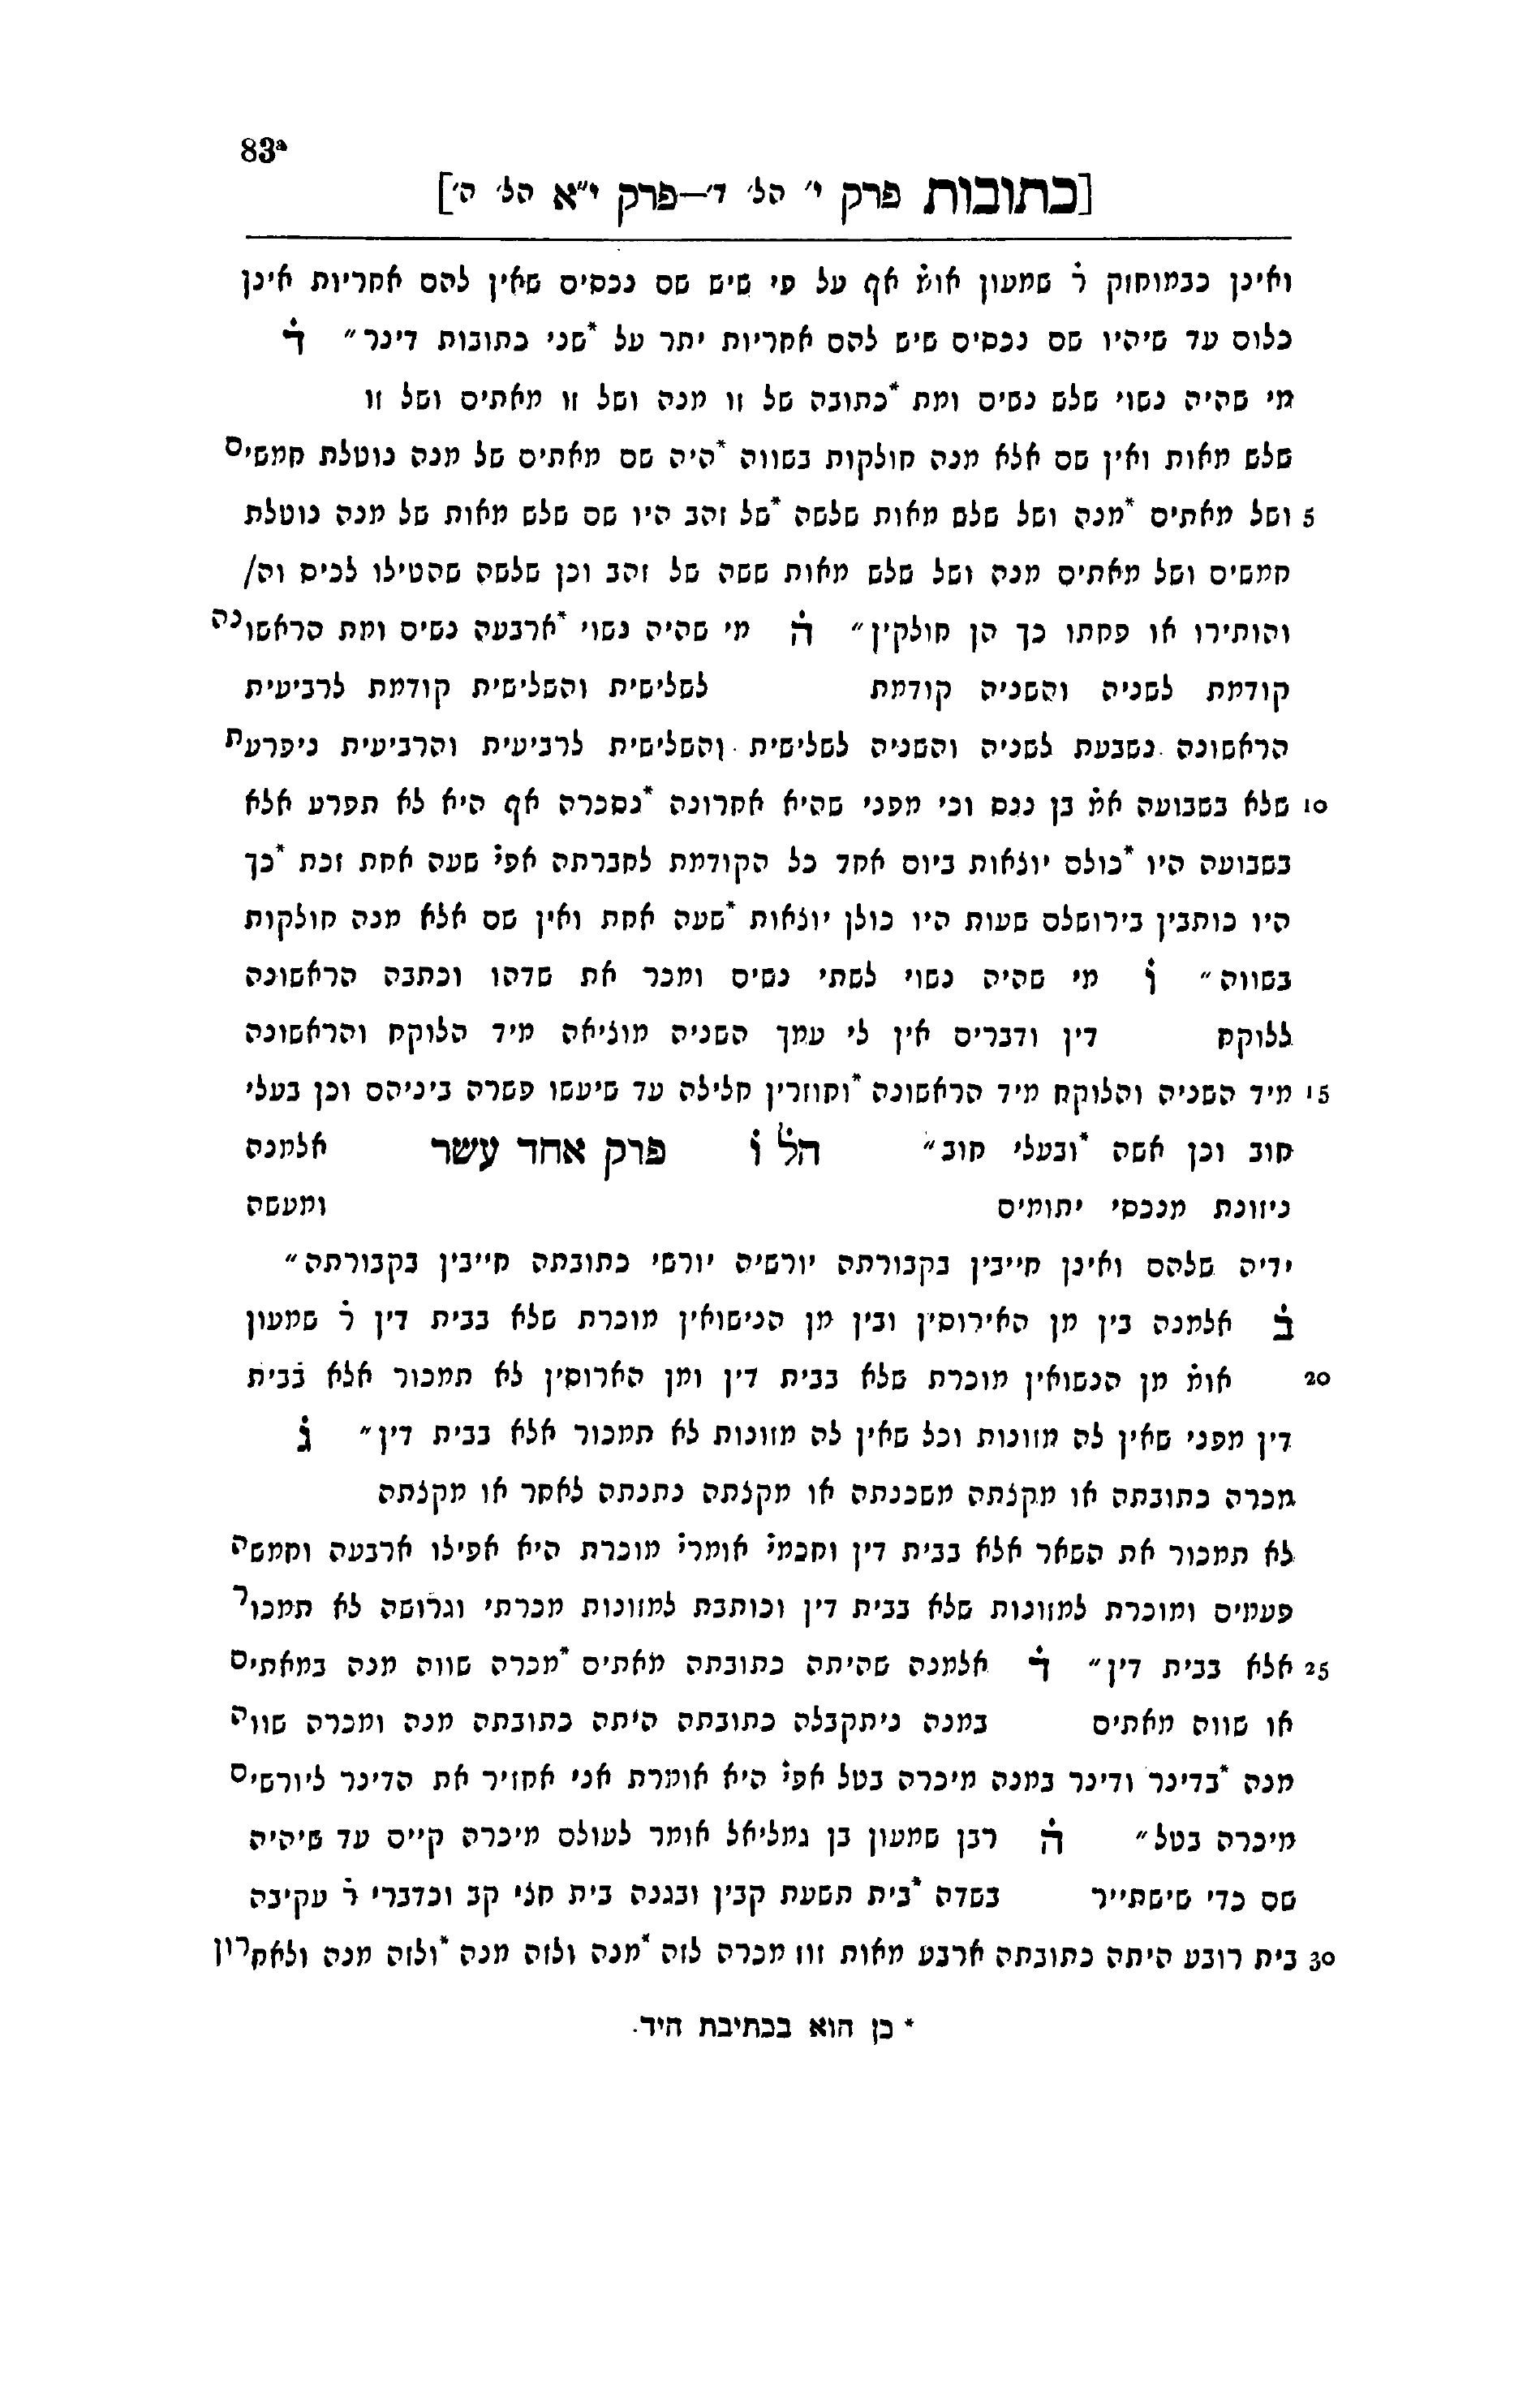 83a
[כתובות פרק י׳ הל׳ ד׳—פרק י״א הל׳ ה׳]
ואינן כבמוחזק ר׳ שמעון אומ׳ אף על פי שיש שם נכסים שאין להם אחריות אינן
כלום עד שיהיו שם נכסים שיש להם אחריות יתר על *שני כתובות דינר״ ד
מי שהיה נשוי שלש נשים ומת *כתובה של זו מנה ושל זו מאתים ושל זו
שלש מאות ואין שם אלא מנה חולקות בשווה *היה שם מאתים של מנה נוטלת חמשים
5 ושל מאתים *מנה ושל שלש מאות שלשה *של זהב היו שם שלש מאות של מנה נוטלת
חמשים ושל מאתים מנה ושל שלש מאות ששה של זהב וכן שלשה שהטילו לכיס וה/
והותירו או פחתו כך הן חולקין״ ה מי שהיה נשוי *ארבעה נשים ומת הראשונה
קודמת לשניה והשניה קודמת לשלישית והשלישית קודמת לרביעית
הראשונה נשבעת לשניה והשניה לשלישית והשלישית לרביעית והרביעית ניפרעת
10 שלא בשבועה אמ׳ בן ננס וכי מפני שהיא אחרונה *נסכרה אף היא לא תפרע אלא
בשבועה היו *כולם יוצאות ביום אחד כל הקודמת לחברתה אפי׳ שעה אחת זכת *כך
היו כותבין בירושלם שעות היו כולן יוצאות *שעה אחת ואין שם אלא מנה חולקות
בשווה״ ו מי שהיה נשוי לשתי נשים ומכר את שדהו וכתבה הראשונה
ללוקח דין ודברים אין לי עמך השניה מוציאה מיד הלוקח והראשונה
15 מיד השניה והלוקח מיד הראשונה *וחוזרין חלילה עד שיעשו פשרה ביניהם וכן בעלי
חוב וכן אשה *ובעלי חוב״ הל׳ ו פרק אחד עשר אלמנה
ניזונת מנכסי יתומים ומעשה
ידיה שלהם ואינן חייבין בקבורתה יורשיה יורשי כתובתה חייבין בקבורתה״
ב אלמנה בין מן האירוסין ובין מן הנישואין מוכרת שלא בבית דין ר׳ שמעון
20 אומ׳ מן הנשואין מוכרת שלא בבית דין ומן הארוסין לא תמכור אלא בבית
דין מפני שאין לה מזונות וכל שאין לה מזונות לא תמכור אלא בבית דין״ ג
מכרה כתובתה או מקצתה משכנתה או מקצתה נתנתה לאחר או מקצתה
לא תמכור את השאר אלא בבית דין וחכמי׳ אומרי׳ מוכרת היא אפילו ארבעה וחמשה
פעמים ומוכרת למזונות שלא בבית דין וכותבת למזונות מכרתי וגרושה לא תמכור
25 אלא בבית דין״ ד אלמנה שהיתה כתובתה מאתים *מכרה שווה מנה במאתים
או שווה מאתים במנה ניתקבלה כתובתה היתה כתובתה מנה ומכרה שווה
מנה *בדינר ודינר במנה מיכרה בטל אפי׳ היא אומרת אני אחזיר את הדינר ליורשים
מיכרה בטל״ ה רבן שמעון בן גמליאל אומר לעולם מיכרה קיים עד שיהיה
שם כדי שישתייר בשדה *בית תשעת קבין ובגנה בית חצי קב וכדברי ר׳ עקיבה
30 בית רובע היתה כתובתה ארבע מאות זוז מכרה לזה *מנה ולזה מנה *ולזה מנה ולאחרון
* כן הוא בכתיבת היד.